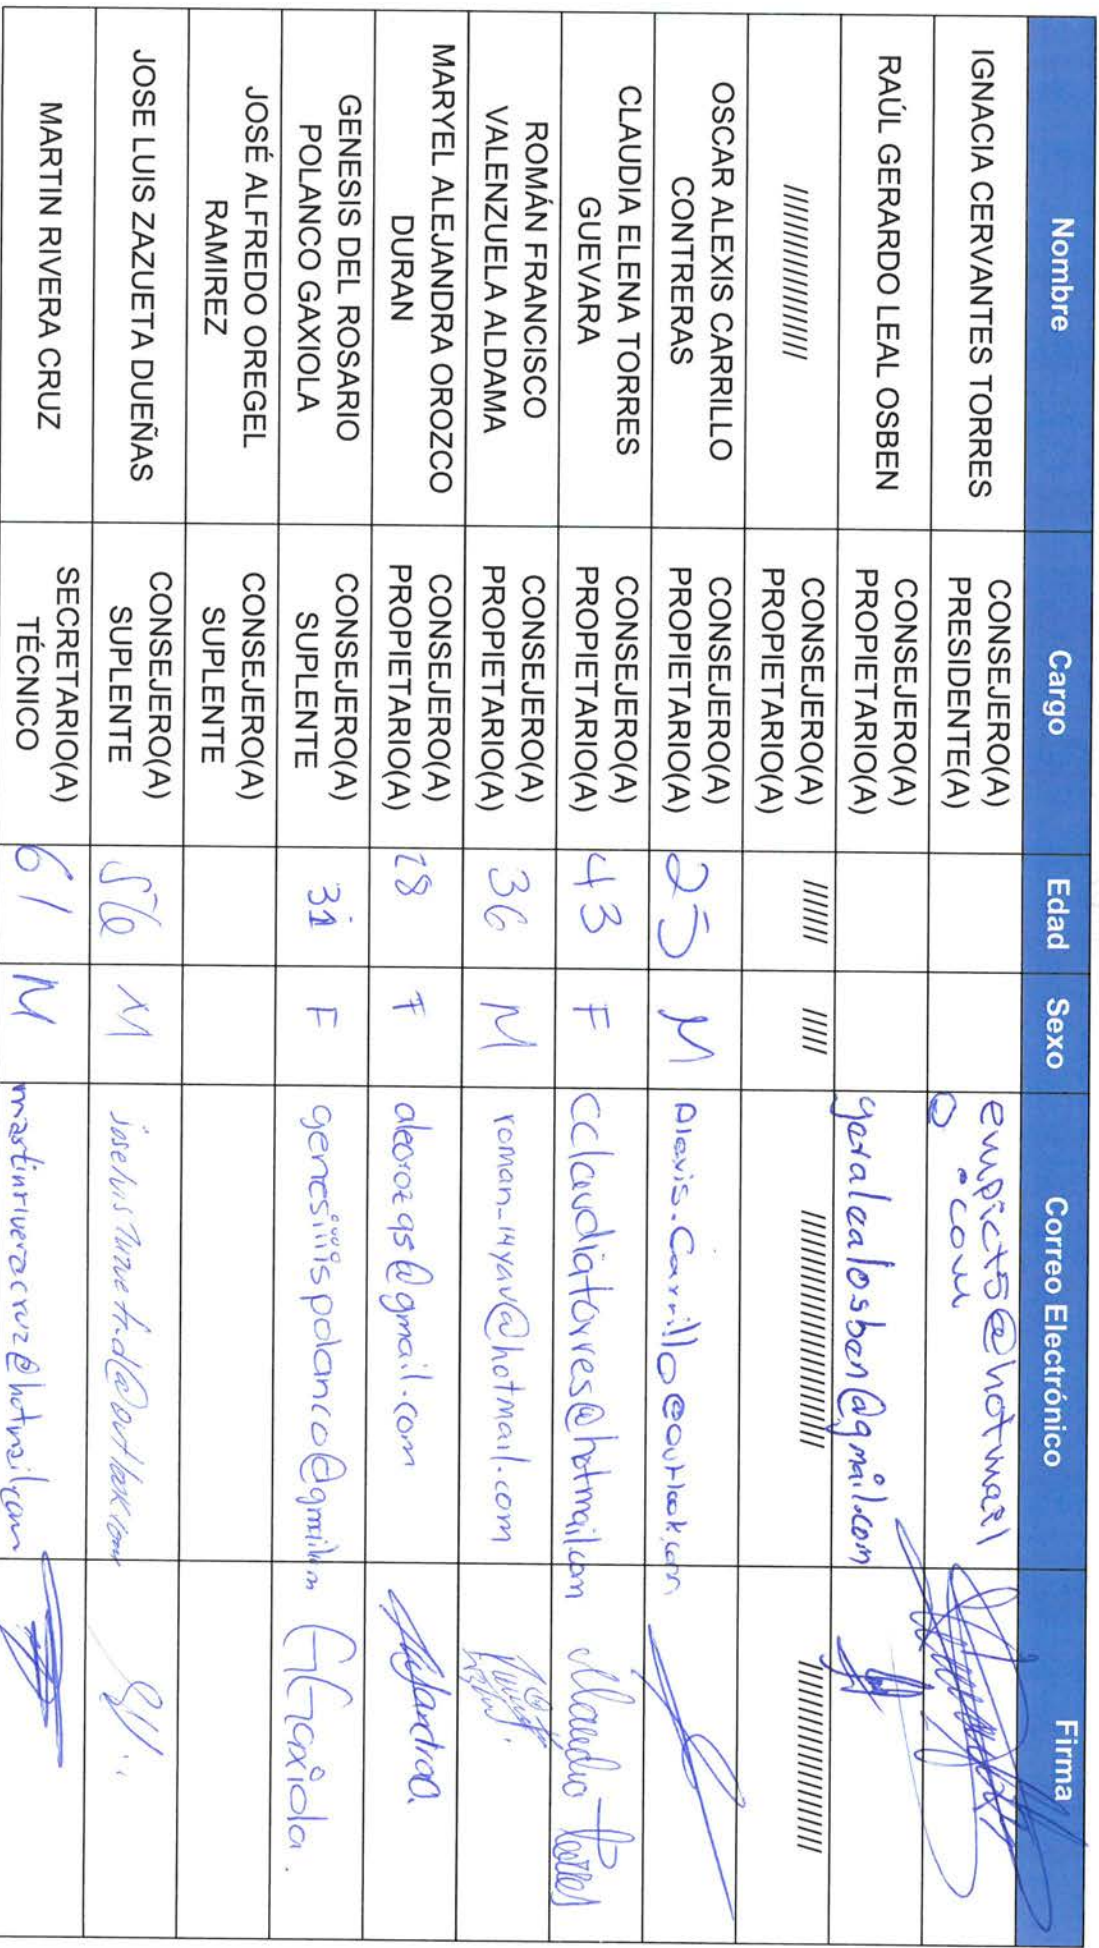 Nombre Cargo Edad Sexo Correo Electrónico Firma
IGNACIA CERVANTES TORRES
CONSEJERO(A)
PRESIDENTE(A)
empict5@hotmail
.com
RAÚL GERARDO LEAL OSBEN
CONSEJERO(A)
PROPIETARIO(A)
geralealosben@gmail.com
/////////////////////
CONSEJERO(A)
PROPIETARIO(A)
////////
//////
//////////////////////////////
////////////////////////
OSCAR ALEXIS CARRILLO
CONTRERAS
CONSEJERO(A)
PROPIETARIO(A)
25
M
Alexis.Carrillo@outlook.com
CLAUDIA ELENA TORRES
GUEVARA
CONSEJERO(A)
PROPIETARIO(A)
43
F
cclaudiatorres@hotmail.com
Claudia Torres
ROMÁN FRANCISCO
VALENZUELA ALDAMA
CONSEJERO(A)
PROPIETARIO(A)
36
M
roman_14yav@hotmail.com
MARYEL ALEJANDRA OROZCO
DURAN
CONSEJERO(A)
PROPIETARIO(A)
28
F
aleoroz95@gmail.com
Alejandra
GENESIS DEL ROSARIO
POLANCO GAXIOLA
CONSEJERO(A)
SUPLENTE
31
F
genesiiispolanco@gmail.com
GGaxiola.
JOSÉ ALFREDO OREGEL
RAMIREZ
CONSEJERO(A)
SUPLENTE
JOSE LUIS ZAZUETA DUEÑAS
CONSEJERO(A)
SUPLENTE
56
M
MARTIN RIVERA CRUZ
SECRETARIO(A)
TÉCNICO
61
M
martinriveracruz@hotmail.com